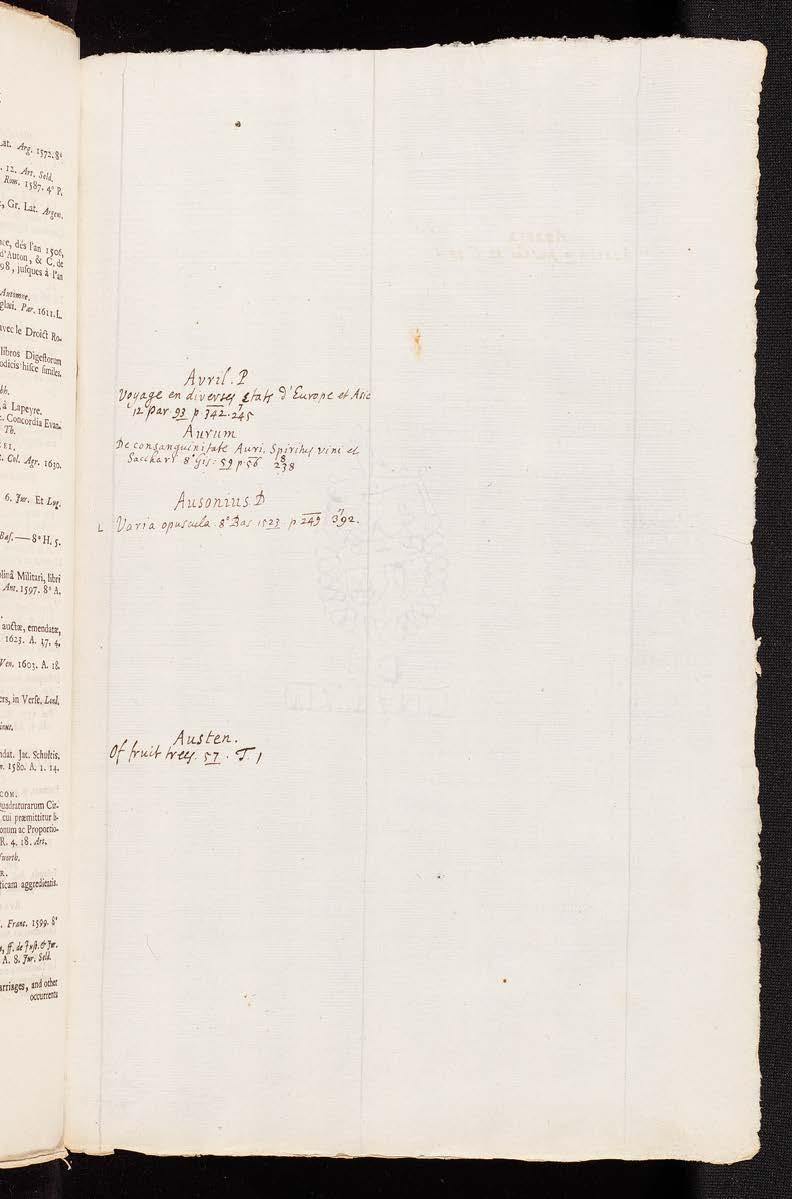 Lat. Arg. 1572. 8°
12. Art. Seld.
Rom. 1587. 4° P.
Gr. Lat. Argen.
dés l'an 1506,
d'Auton, & C. de
98, jusques à l'an
Antimne.
Par. 1611. L.
avec le Droict Ro-
libros Digestorum
hisce similes.
à Lapeyre.
Concordia Evan.
Th.
Col. Agr. 1630.
6. Jur. Et Lug.
Bas. — 8° H. 5.
Militari, libri
Ant. 1597. 8° A.
auctæ, emendatæ,
1623. A. 17. 4.
Ven. 1603. A. 18.
in Verse. Lond.
Jac. Schultis.
1580. A. 1. 14.
COM.
Quadraturarum Cir-
cui præmittitur li-
ac Proportio-
R. 4. 18. Art.
aggredientis.
Franc. 1599. 8°
ff. de Just. & Jur.
A. 8. Jur. Seld.
and other
occurrents
Avril. P
Voyage en diverses Etats d'Europe et Asie
12° Par 93 p 342. 245
Aurum
De consanguinitate Auri. Spiritus vini et
Sacchari 8° 59 p 56 238
Ausonius. D
L Varia opuscula 8° Bas 1523 p 249 392.
Austen.
Of fruit trees. 57. T. 1